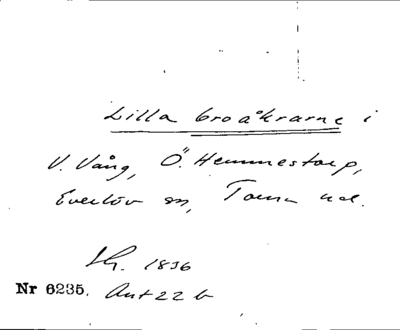 Lilla broåkrarne i
V. Vång, Ö. Hemmestorp,
Everlöv sn, Torna hd.
Sk. 1836
Nr 6235. Ant 22 b